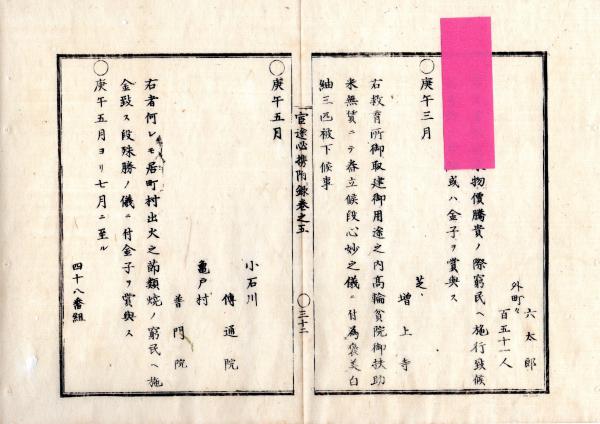 六太郎
外町々
百五十一人
物價騰貴ノ際窮民ヘ施行致候
或ハ金子ヲ賞與ス
○庚午三月
芝
增上寺
右救育所御取建御用途之内高輪貧院御扶助
米無賃ニテ舂立候段心妙之儀ニ付為褒美白
紬三匹被下候事
官途必携附錄卷之五
○三十二
○庚午五月
小石川
傳通院
亀戸村
普門院
右者何レモ居町村出火之節類焼ノ窮民ヘ施
金致ス段殊勝ノ儀ニ付金子ヲ賞與ス
○庚午五月ヨリ七月ニ至ル
四十八番組